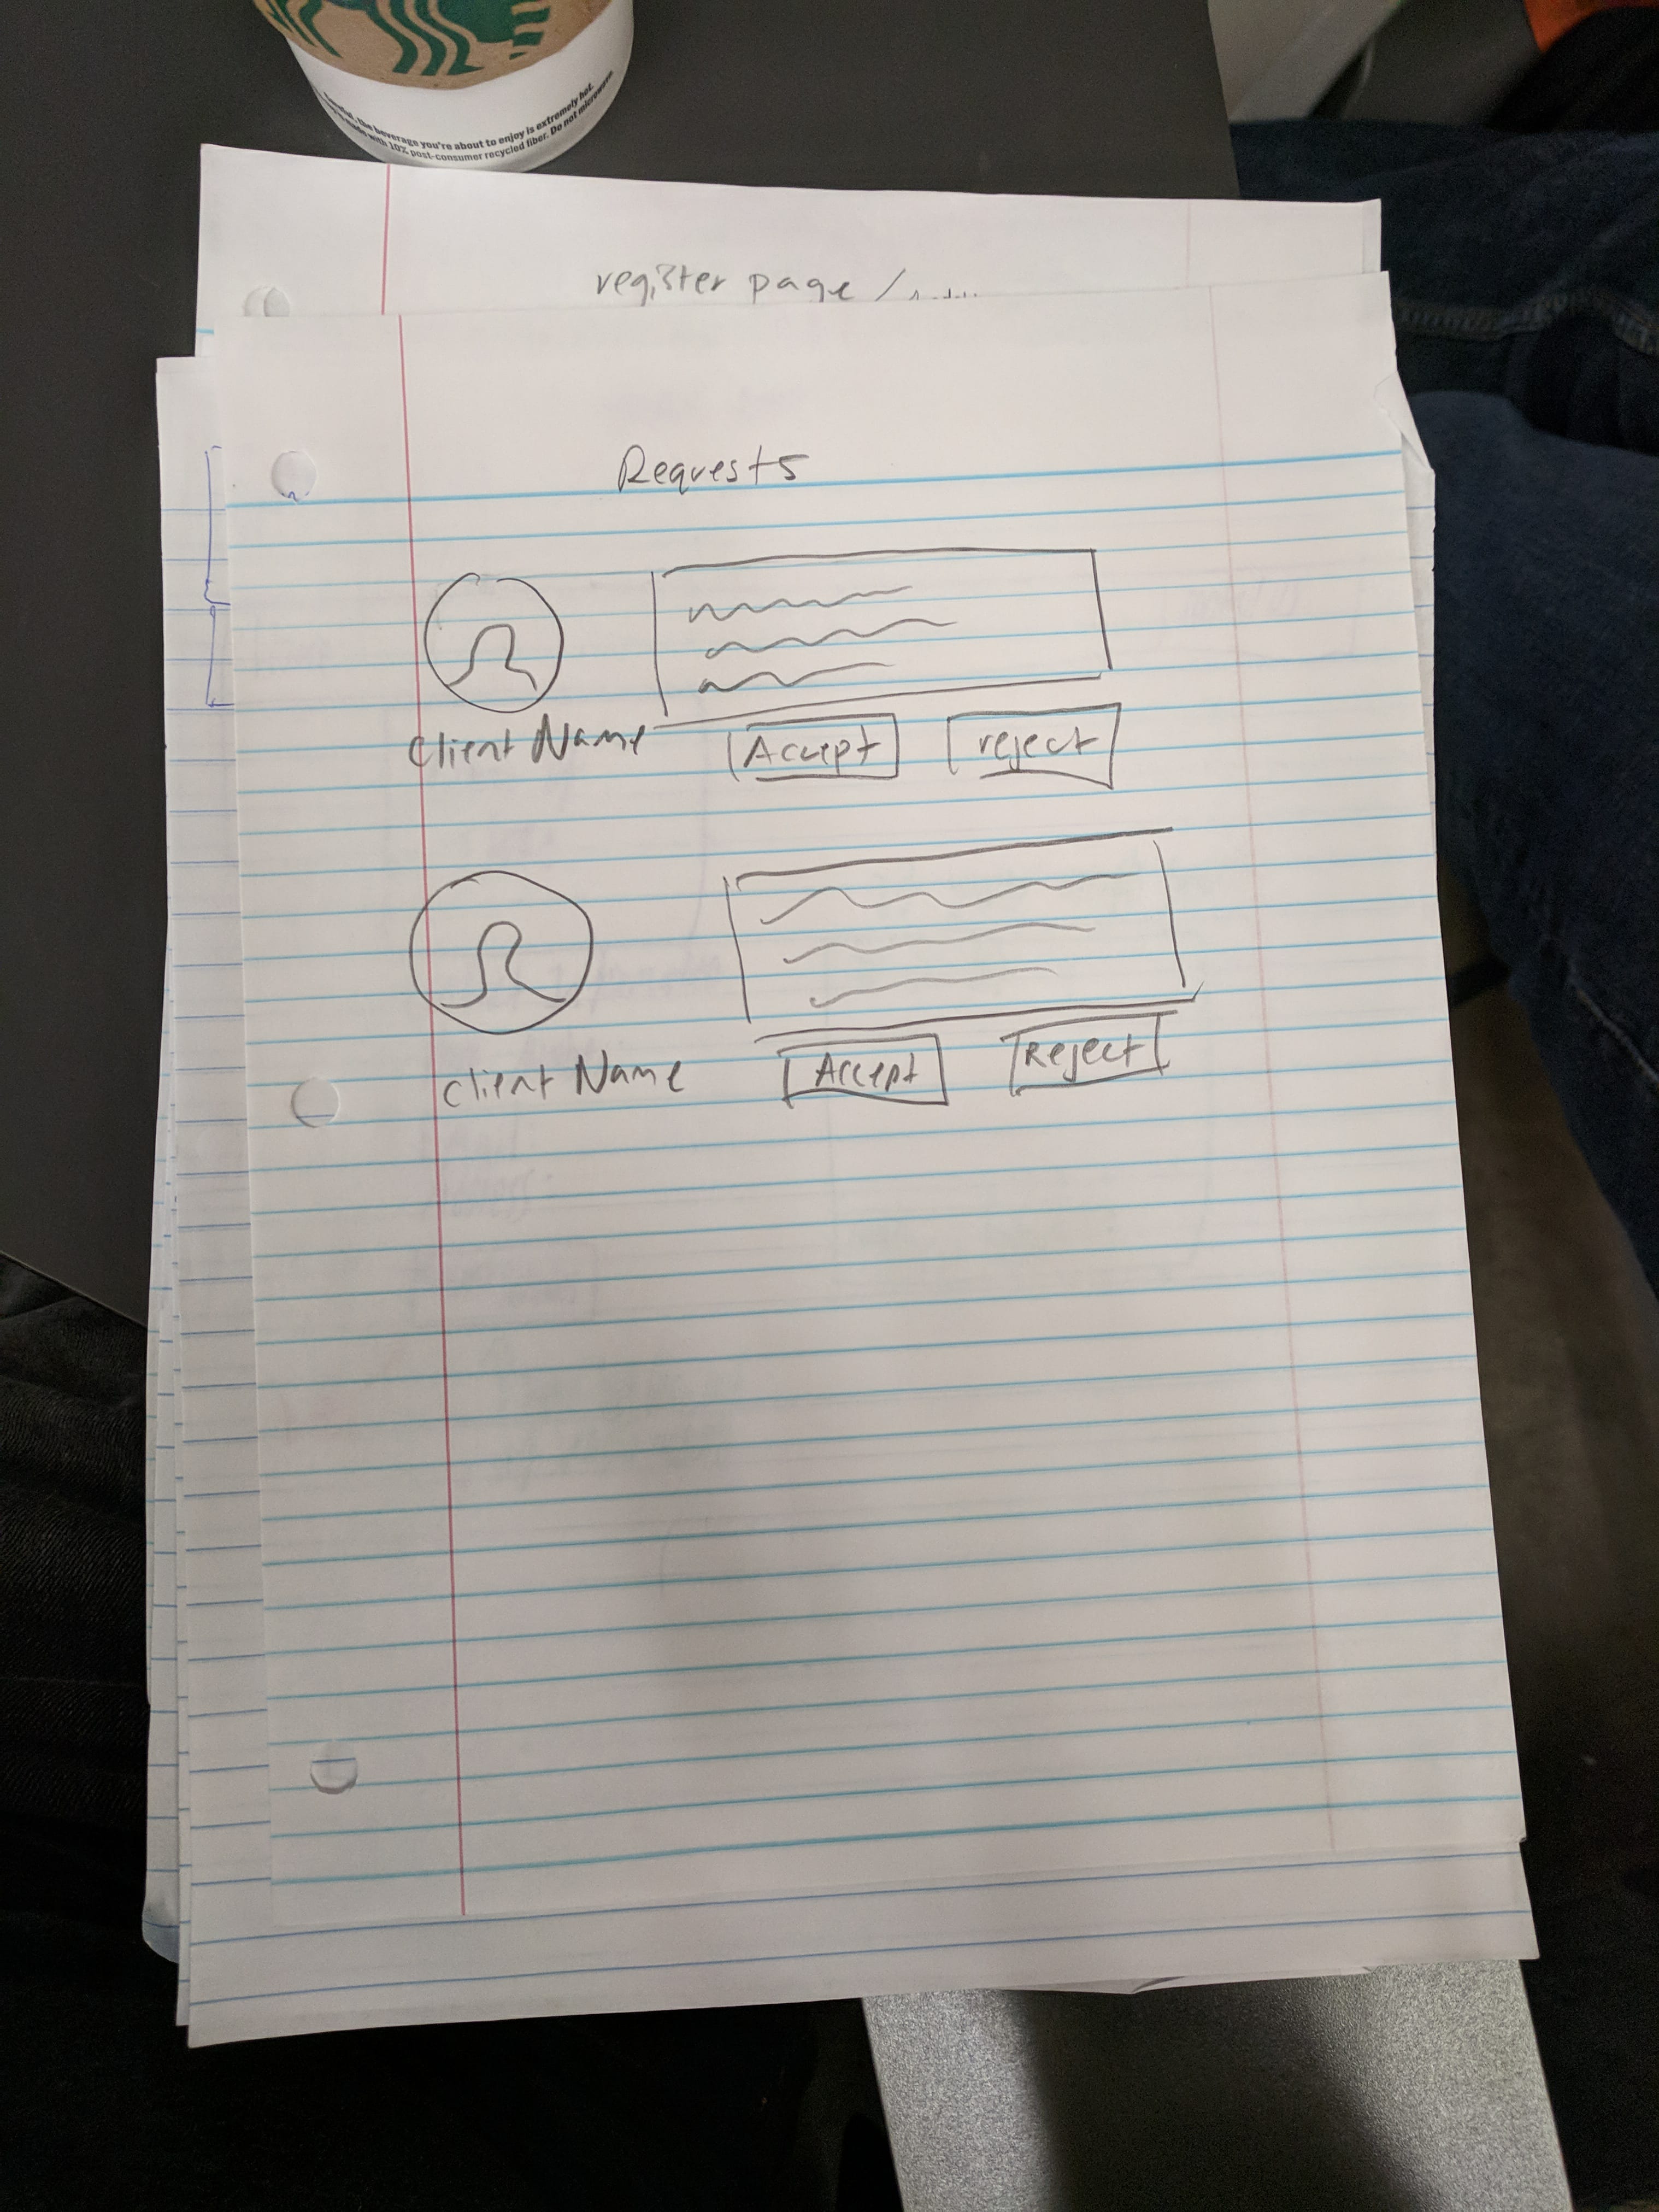 the beverage you're about to enjoy is extremely hot.
made with 10% post-consumer recycled fiber. Do not microwave
register page /
Requests
Client Name
Accept
reject
client Name
Accept
Reject